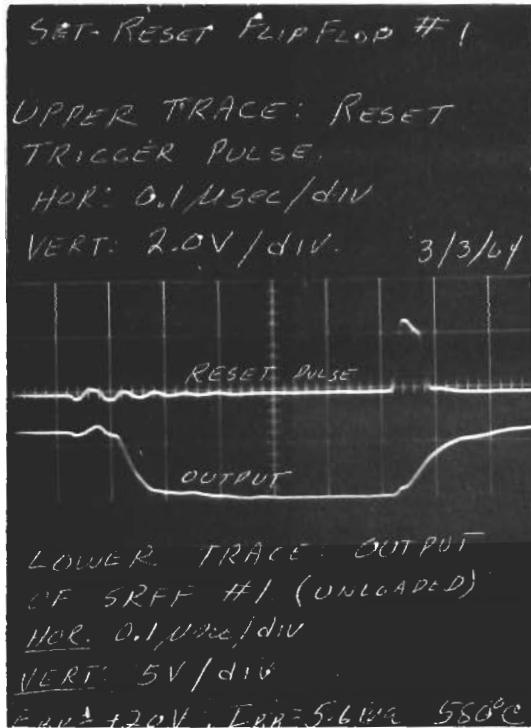 SET-RESET FLIP FLOP #1
UPPER TRACE: RESET
TRIGGER PULSE.
HOR: 0.1 µsec/div
VERT: 2.0V/div. 3/3/64
RESET PULSE
OUTPUT
LOWER TRACE: OUTPUT
OF SRFF #1 (UNLOADED)
HOR. 0.1 µsec/div
VERT: 5V/div
+20V, 5.6 550°C